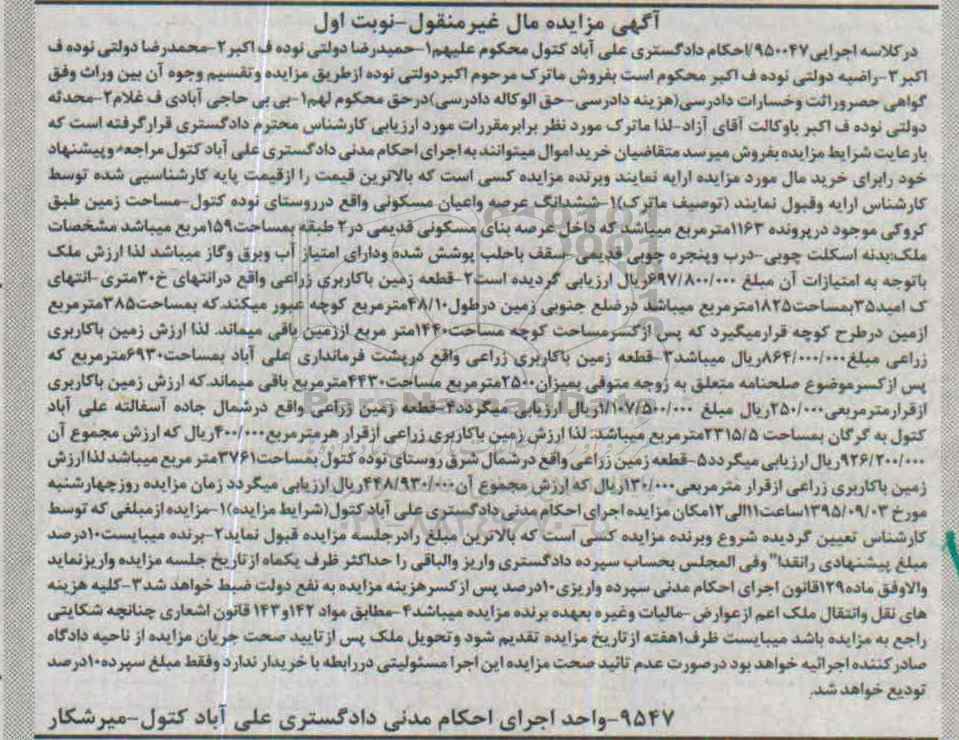 آگهی مزایده مال غیرمنقول-نوبت اول
درکلاسه اجرایی۹۵۰۰۴۷/احکام دادگستری علی آباد کتول محکوم علیهم۱-حمیدرضا دولتی نوده ف اکبر۲-محمدرضا دولتی نوده ف
اکبر۳-راضیه دولتی نوده ف اکبر محکوم است بفروش ماترک مرحوم اکبردولتی نوده ازطریق مزایده وتقسیم وجوه آن بین وراث وفق
گواهی حصروراثت وخسارات دادرسی(هزینه دادرسی-حق الوکاله دادرسی)درحق محکوم لهم۱-بی بی حاجی آبادی ف غلام۲-محدثه
دولتی نوده ف اکبر باوکالت آقای آزاد-لذا ماترک مورد نظر برابرمقررات مورد ارزیابی کارشناس محترم دادگستری قرارگرفته است که
بارعایت شرایط مزایده بفروش میرسد متقاضیان خرید اموال میتوانند به اجرای احکام مدنی دادگستری علی آباد کتول مراجعه وپیشنهاد
خود رابرای خرید مال مورد مزایده ارایه نمایند وبرنده مزایده کسی است که بالاترین قیمت را ازقیمت پایه کارشناسی شده توسط
کارشناس ارایه وقبول نمایند (توصیف ماترک)۱-ششدانگ عرصه واعیان مسکونی واقع درروستای نوده کتول-مساحت زمین طبق
کروکی موجود درپرونده ۱۱۶۳مترمربع میباشد که داخل عرصه بنای مسکونی قدیمی در۲ طبقه بمساحت۱۵۹مربع میباشد مشخصات
ملک:بدنه اسکلت چوبی-درب وپنجره چوبی قدیمی-سقف باحلب پوشش شده ودارای امتیاز آب وبرق وگاز میباشد لذا ارزش ملک
باتوجه به امتیازات آن مبلغ ۶۹۷/۸۰۰/۰۰۰ریال ارزیابی گردیده است۲-قطعه زمین باکاربری زراعی واقع درانتهای خ۳۰متری-انتهای
ک امید۳۵بمساحت۱۸۲۵مترمربع میباشد درضلع جنوبی زمین درطول۴۸/۱۰مترمربع کوچه عبور میکند.که بمساحت۳۸۵مترمربع
ازمین درطرح کوچه قرارمیگیرد که پس ازکسرمساحت کوچه مساحت۱۴۴۰متر مربع اززمین باقی میماند. لذا ارزش زمین باکاربری
زراعی مبلغ۸۶۴/۰۰۰/۰۰۰ریال میباشد۳-قطعه زمین باکاربری زراعی واقع درپشت فرمانداری علی آباد بمساحت۶۹۳۰مترمربع که
پس ازکسرموضوع صلحنامه متعلق به زوجه متوفی بمیزان۲۵۰۰مترمربع مساحت۴۴۳۰مترمربع باقی میماند.که ارزش زمین باکاربری
ازقرارمترمربعی۲۵۰/۰۰۰ریال مبلغ ۱/۱۰۷/۵۰۰/۰۰۰ریال ارزیابی میگردد۴-قطعه زمین زراعی واقع درشمال جاده آسفالته علی آباد
کتول به گرگان بمساحت ۲۳۱۵/۵مترمربع میباشد. لذا ارزش زمین باکاربری زراعی ازقرار هرمترمربع۴۰۰/۰۰۰ریال که ارزش مجموع آن
۹۲۶/۲۰۰/۰۰۰ریال ارزیابی میگردد۵-قطعه زمین زراعی واقع درشمال شرق روستای نوده کتول بمساحت۳۷۶۱متر مربع میباشد لذا ارزش
زمین باکاربری زراعی ازقرار مترمربعی۱۳۰/۰۰۰ریال که ارزش مجموع آن۴۴۸/۹۳۰/۰۰۰ریال ارزیابی میگردد زمان مزایده روزچهارشنبه
مورخ ۱۳۹۵/۰۹/۰۳ساعت۱۱الی۱۲مکان مزایده اجرای احکام مدنی دادگستری علی آباد کتول(شرایط مزایده)۱-مزایده ازمبلغی که توسط
کارشناس تعیین گردیده شروع وبرنده مزایده کسی است که بالاترین مبلغ رادرجلسه مزایده قبول نماید۲-برنده میبایست۱۰درصد
مبلغ پیشنهادی رانقدا" وفی المجلس بحساب سپرده دادگستری واریز والباقی را حداکثر ظرف یکماه ازتاریخ جلسه مزایده واریزنماید
والاوفق ماده۱۲۹قانون اجرای احکام مدنی سپرده واریزی۱۰درصد پس ازکسرهزینه مزایده به نفع دولت ضبط خواهد شد۳-کلیه هزینه
های نقل وانتقال ملک اعم ازعوارض-مالیات وغیره بعهده برنده مزایده میباشد۴-مطابق مواد ۱۴۲و۱۴۳ قانون اشعاری چنانچه شکایتی
راجع به مزایده باشد میبایست ظرف۱هفته ازتاریخ مزایده تقدیم شود وتحویل ملک پس ازتایید صحت جریان مزایده از ناحیه دادگاه
صادرکننده اجرائیه خواهد بود درصورت عدم تائید صحت مزایده این اجرا مسئولیتی دررابطه با خریدار ندارد وفقط مبلغ سپرده۱۰درصد
تودیع خواهد شد.
۹۵۴۷-واحد اجرای احکام مدنی دادگستری علی آباد کتول-میرشکار